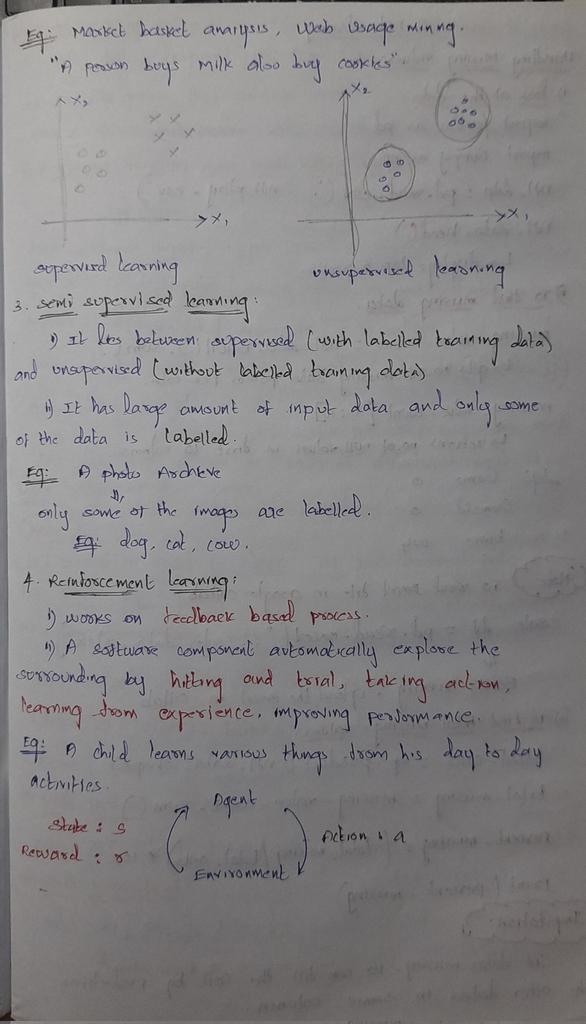 Eg: Market basket analysis, Web usage mining.
"A person buys milk also buy cookies"
X2
X2
X1
X1
supervised learning
unsupervised learning
3. semi supervised learning:
i) It lies between supervised (with labelled training data)
and unsupervised (without labelled training data)
ii) It has large amount of input data and only some
of the data is labelled.
Eg: A photo Archive
only some of the images are labelled.
Eg: dog, cat, cow.
4. Reinforcement learning:
i) works on feedback based process.
ii) A software component automatically explore the
surrounding by hitting and trial, taking action,
learning from experience, improving performance.
Eg: A child learns various things from his day to day
activities.
Agent
State : s
Action : a
Reward : r
Environment